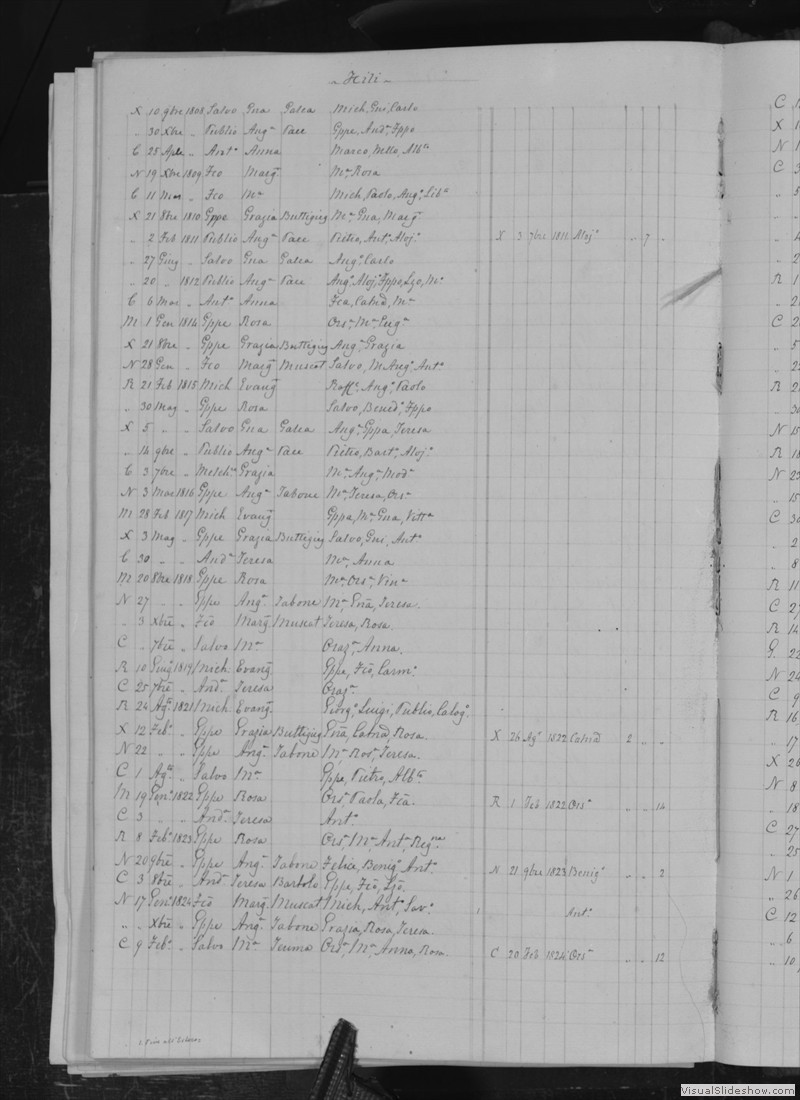 Xili
X 10 9bre 1808 Salvo Gna Galea Mich, Gni, Carlo
" 30 Xbre " Publio Angª Pace Gppe, Andª, Fppo
C 25 Aple " Antº Anna Marco, Mello, Albª
N 19 Xbre 1809 Fco Margª Mª Rosa
C 11 " Fco Mª Mich, Paolo, Angº, Libª
X 21 8bre 1810 Gppe Grazia Buttigieg Mª, Gna, Margª
" 2 Feb 1811 Publio Angª Pace Pietro, Antº, Alojº X 3 7bre 1811 Alojº " 7 "
" 27 Giug " Salvo Gna Galea Angº, Carlo
" 20 " 1812 Publio Angª Pace Angº, Aloj, Fppo, Lzo, Mª
C 6 Mar " Antº Anna Fca, Catnd, Mª
M 1 Gen 1814 Gppe Rosa Orsª, Mª, Eugª
X 21 8bre " Gppe Grazia Buttigieg Angª, Grazia
N 28 Gen " Fco Margª Muscat Salvo, M Angº, Antº
R 21 Feb 1815 Mich Evangª Raffª, Angº, Paolo
" 30 Mag " Gppe Rosa Salvo, Benedº, Fppo
X 5 " " Salvo Gna Galea Angª, Gppa, Teresa
" 14 9bre " Publio Angª Pace Pietro, Bartº, Alojº
C 3 7bre " Melchº Grazia Mª, Angª, Modª
N 3 Mar 1816 Gppe Angª Tabone Mª, Teresa, Orsª
M 28 Feb 1817 Mich Evangª Gppa, Mª, Gna, Vittª
X 3 Mag " Gppe Grazia Buttigieg Salvo, Gni, Antº
C 30 " " Andª Teresa Mª, Anna
M 20 8bre 1818 Gppe Rosa Mª, Orsª, Vinª
N 27 " " Gppe Angª Tabone Mª, Gna, Teresa.
" 3 Xbre " Fco Margª Muscat Teresa, Rosa.
C " 7bre " Salvo Mª Grazª, Anna.
R 10 Giugº 1819 Mich Evangª Gppe, Fco, Carmº
C 25 7bre " Andª Teresa Grazª
R 24 Agº 1821 Mich Evangª Giorgº, Luigi, Publio, Calogº
X 12 Febº " Gppe Grazia Buttigieg Gna, Catnd, Rosa. X 26 Agº 1822 Catnd 2 " "
N 22 " " Gppe Angª Tabone Mª, Rosª, Teresa.
C 1 Agº " Salvo Mª Gppe, Pietro, Albª
M 19 Genº 1822 Gppe Rosa Orsª, Paola, Fca. R 1 Feb 1822 Orsª " " 14
C 3 " " Andª Teresa Antº
R 8 Febº 1823 Gppe Rosa Orsª, Mª, Antª, Regna
N 20 9bre " Gppe Angª Tabone Felice, Benigº, Antº N 21 9bre 1823 Benigº " " 2
C 3 8bre " Andª Teresa Bartolo Gppe, Fco, Lzo.
N 17 Genº 1824 Fco Margª Muscat Mich, Antº, Savº 1 Antº
" " Xbre " Gppe Angª Tabone Grazia, Rosa, Teresa.
C 9 Febº " Salvo Mª Teuma Orsª, Mª, Anna, Rosa. C 20 Feb 1824 Orsª " " 12
VisualSlideshow.com